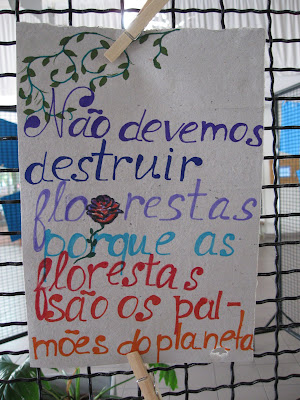 Não devemos
destruir
florestas
porque as
florestas
são os pul-
mões do planeta